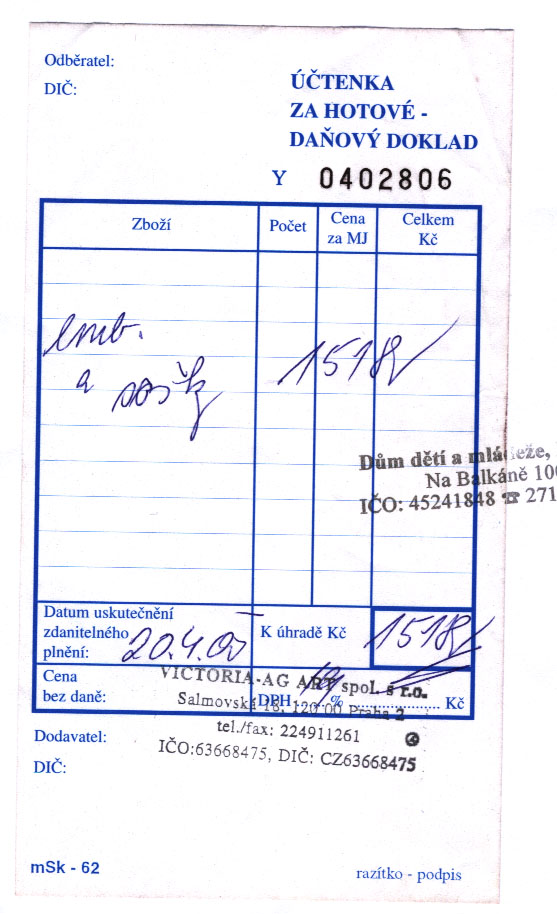 Odběratel:
DIČ:
ÚČTENKA
ZA HOTOVÉ -
DAŇOVÝ DOKLAD
Y 0402806
Zboží Počet Cena za MJ Celkem Kč
1518
a
Dům dětí a mládeže,
Na Balkáně 100
IČO: 45241848 ☎ 271
Datum uskutečnění
zdanitelného
plnění: 20.4.
K úhradě Kč 1518
Cena
bez daně:
DPH 19 % Kč
VICTORIA-AG ART spol. s r.o.
Salmovská 18, 120 00 Praha 2
tel./fax: 224911261
IČO:63668475, DIČ: CZ63668475
Dodavatel:
DIČ:
mSk - 62
razítko - podpis